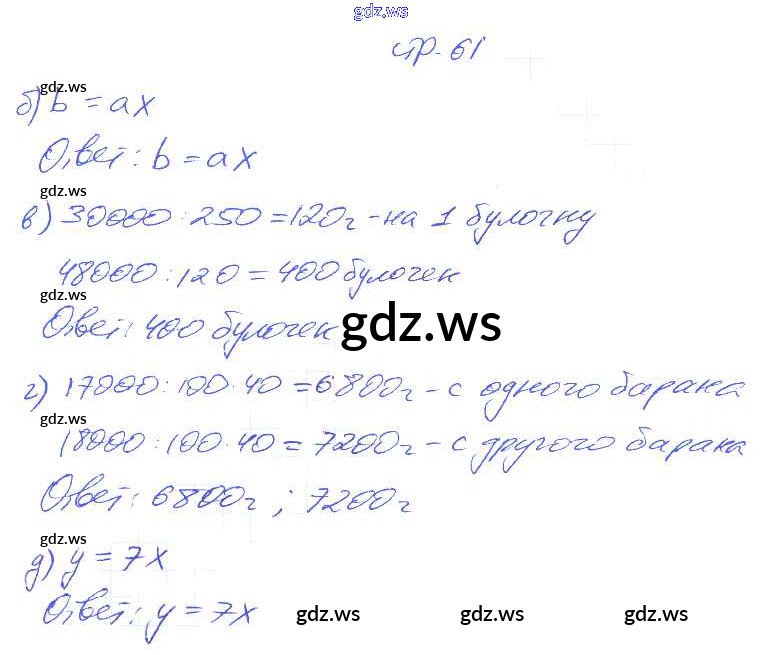 gdz.ws
стр. 61
gdz.ws
б) b = ax
Ответ: b = ax
gdz.ws
в) 30000 : 250 = 120г - на 1 булочку
48000 : 120 = 400 булочек
gdz.ws
Ответ: 400 булочек
gdz.ws
г) 17000 : 100 · 40 = 6800г - с одного барана
gdz.ws
18000 : 100 · 40 = 7200г - с другого барана
Ответ: 6800г ; 7200г
gdz.ws
д) y = 7x
Ответ: y = 7x
gdz.ws gdz.ws gdz.ws